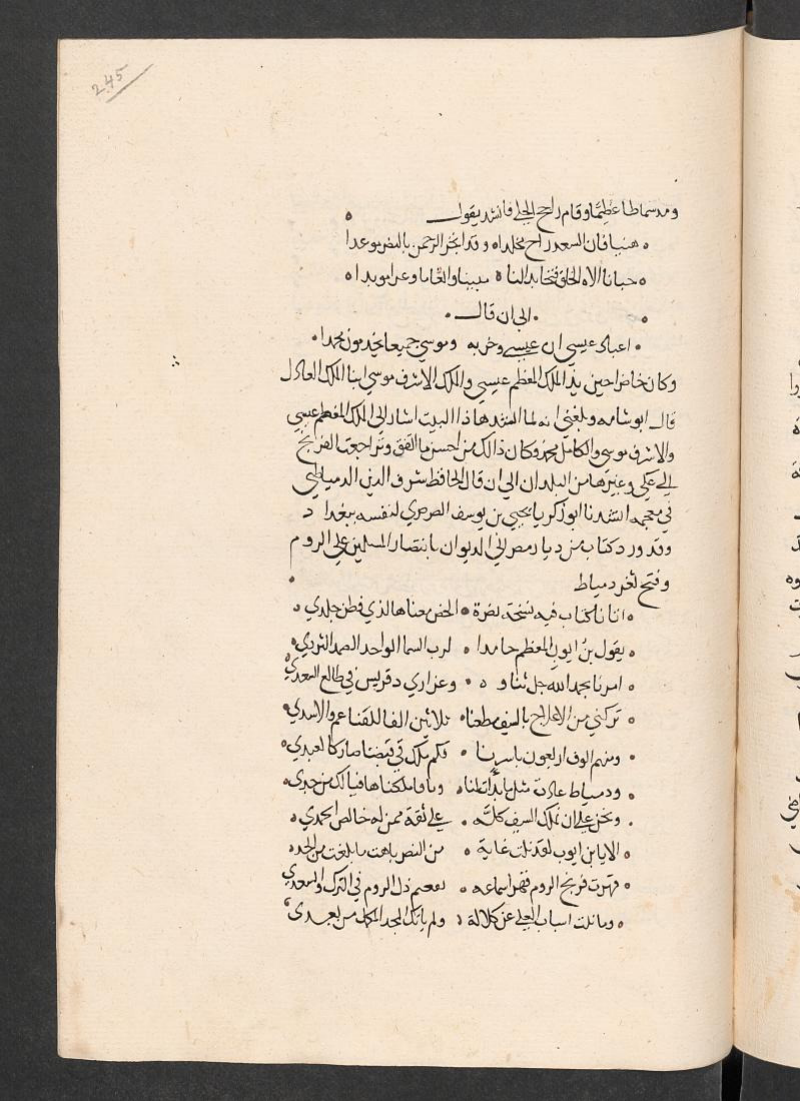 245
ومد سماطا عظيما وقام راجح الحلي فانشد يقول
هنيا فان السعد راح مخلداه وقد انجز الرحمن بالنصر موعدا
حبانا الاه الخلق فتحا بدا لناه مبينا وانعاما وعزا موبداه
الي ان قال
اعباد عيسي ان عيسي وحزبه وموسي جميعا يخدمون محمدا
وكان حاضرا حين يذ الملك المعظم عيسي والملك الاشرف موسي ابنا الملك العادل
قال ابو شامه وبلغني انه لما انشد هاذا البيت اشار الي الملك المعظم عيسي
والاشرف موسي والكامل محمد وكان ذالك من احسن ما اتفق وتراجعت الفرنج
الي عكي وغيرها من البلدان الي ان قال الحافظ شرف الدين الدمياطي
في معجمه انشدنا ابو زكريا يحيي بن يوسف الصرصري لنفسه ببغداد
وقد ورد كتاب من ديار مصر الي الديوان بانتصار المسلمين علي الروم
وفتح ثغر دمياط
اتانا كتاب فيه نسخة نصرة الخص معناها لذي فطن جلدي
يقول بن ايوب المعظم حامدا لرب السما الواحد الصمد الفردي
امرنا بحمد الله جل ثناوه وعز اري دفريس في طالع السعدي
تركني من الاعلاج بالسيف مطعما ثلاثين الفا للقنا عم والاسدي
ومنهم الوف اربعون باسرنا فكم ملك في قبضنا صار كالعبدي
ودمياط عادت مثل ما بدات لنا ويافا ملكناها فيا لك من جدي
ونحن علي ان نملك السيف كله علي ثقة ممن له خالص الحمدي
الا يا بن ايوب لقد نلت غاية من النصر باهت ما بلغت من الجده
قهرت فرنج الروم قهرا سماعه يعم ذل الروم في الترك والسعدي
وما نلت اسباب العلي عن كلالة ولم ياتك المجد المكمل من بعدي